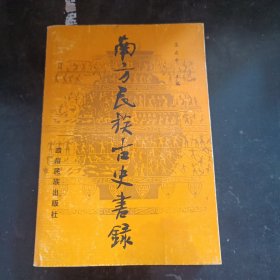 南方民族古史書錄
四川民族出版社